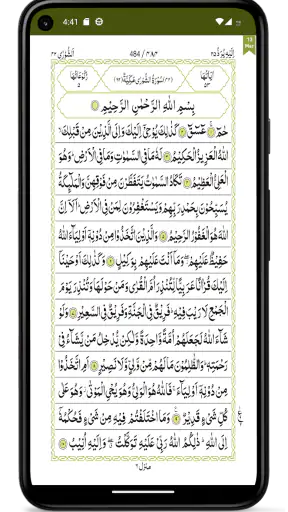 4:41
اِلَيْهِ يُرَدُّ ٢٥
484 / ٣٨٣
اَلشُّوْرٰى ٤٢
13
Mar
اٰيَاتُهَا ٥٣
(٤٢) سُوْرَةُ الشُّوْرٰى مَكِّيَّةٌ (٦٢)
رُكُوْعَاتُهَا ٥
بِسْمِ اللّٰهِ الرَّحْمٰنِ الرَّحِيْمِ
حٰمٓ ۚ﴿١﴾ عٓسٓقٓ ﴿٢﴾ كَذٰلِكَ يُوْحِيْۤ اِلَيْكَ وَاِلَى الَّذِيْنَ مِنْ قَبْلِكَ ۙ
اللّٰهُ الْعَزِيْزُ الْحَكِيْمُ ﴿٣﴾ لَهٗ مَا فِى السَّمٰوٰتِ وَمَا فِى الْاَرْضِ ؕ وَهُوَ
الْعَلِىُّ الْعَظِيْمُ ﴿٤﴾ تَكَادُ السَّمٰوٰتُ يَتَفَطَّرْنَ مِنْ فَوْقِهِنَّ وَالْمَلٰٓئِكَةُ
يُسَبِّحُوْنَ بِحَمْدِ رَبِّهِمْ وَيَسْتَغْفِرُوْنَ لِمَنْ فِى الْاَرْضِ ؕ اَلَاۤ اِنَّ
اللّٰهَ هُوَ الْغَفُوْرُ الرَّحِيْمُ ﴿٥﴾ وَالَّذِيْنَ اتَّخَذُوْا مِنْ دُوْنِهٖۤ اَوْلِيَآءَ اللّٰهُ
حَفِيْظٌ عَلَيْهِمْ ۖ وَمَاۤ اَنْتَ عَلَيْهِمْ بِوَكِيْلٍ ﴿٦﴾ وَكَذٰلِكَ اَوْحَيْنَاۤ
اِلَيْكَ قُرْاٰنًا عَرَبِيًّا لِّتُنْذِرَ اُمَّ الْقُرٰى وَمَنْ حَوْلَهَا وَتُنْذِرَ يَوْمَ
الْجَمْعِ لَا رَيْبَ فِيْهِ ؕ فَرِيْقٌ فِى الْجَنَّةِ وَفَرِيْقٌ فِى السَّعِيْرِ ﴿٧﴾ وَلَوْ
شَآءَ اللّٰهُ لَجَعَلَهُمْ اُمَّةً وَّاحِدَةً وَّلٰكِنْ يُّدْخِلُ مَنْ يَّشَآءُ فِىْ
رَحْمَتِهٖ ؕ وَالظّٰلِمُوْنَ مَا لَهُمْ مِّنْ وَّلِىٍّ وَّلَا نَصِيْرٍ ﴿٨﴾ اَمِ اتَّخَذُوْا
مِنْ دُوْنِهٖۤ اَوْلِيَآءَ ۚ فَاللّٰهُ هُوَ الْوَلِىُّ وَهُوَ يُحْىِ الْمَوْتٰى ۖ وَهُوَ عَلٰى
كُلِّ شَىْءٍ قَدِيْرٌ ﴿٩﴾ وَمَا اخْتَلَفْتُمْ فِيْهِ مِنْ شَىْءٍ فَحُكْمُهٗۤ
اِلَى اللّٰهِ ؕ ذٰلِكُمُ اللّٰهُ رَبِّىْ عَلَيْهِ تَوَكَّلْتُ ۖ وَاِلَيْهِ اُنِيْبُ ﴿١٠﴾
منزل ٦